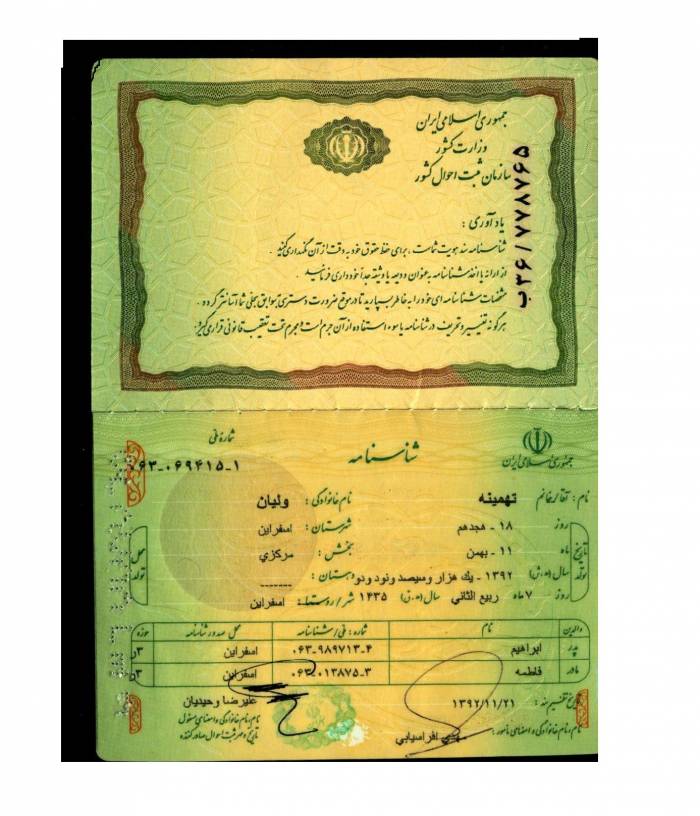 جمهوری اسلامی ایران
وزارت کشور
سازمان ثبت احوال کشور
ب۳۶/۷۷۸۷۶۵
یادآوری :
شناسنامه سند هویت شماست ، برای حفظ حقوق خود به دقت از آن نگهداری کنید .
از ارائه یا اخذ شناسنامه به عنوان ودیعه یا وثیقه جداً خودداری فرمائید .
مشخصات شناسنامه ای خود را به خاطر بسپارید تا در موقع ضرورت دسترسی به سوابق سجلی شما آسانتر گردد .
هر گونه تغییر و تحریف در شناسنامه یا سوء استفاده از آن جرم است و مجرم تحت تعقیب قانونی قرار می گیرد .
جمهوری اسلامی ایران
شناسنامه
شماره ملی
۰۶۳-۰۶۹۴۱۵-۱
نام : آقا/خانم تهمینه نام خانوادگی : ولیان
تاریخ تولد
روز ۱۸ - هجدهم شهرستان : اسفراین
ماه ۱۱ - بهمن بخش : مرکزي
سال (ه.ش) ۱۳۹۲ - يك هزار وسيصد ونود ودو دهستان : -------
روز ۷ ماه ربيع الثاني سال (ه.ق) ۱۴۳۵ شهر/روستا : اسفراین
محل تولد
والدین نام شماره : ملی/شناسنامه محل صدور شناسنامه حوزه
پدر ابراهیم ۰۶۳-۹۸۹۷۱۳-۴ اسفراین ۳ر
مادر فاطمه ۰۶۳-۰۱۳۸۷۵-۳ اسفراین ۳ر
تاریخ تنظیم سند : ۱۳۹۲/۱۱/۲۱
علیرضا وحیدیان
نام ، نام خانوادگی و امضای مأمور : افراسیابي
نام ، نام خانوادگی و امضای مسئول
تاریخ و مهر ثبت احوال صادرکننده